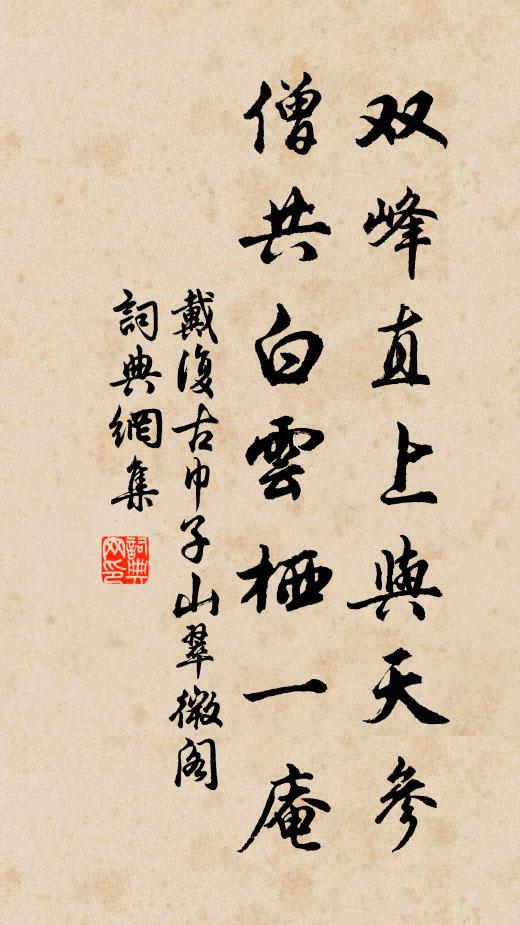 双峰直上與天參
僧共白雲栖一庵
戴復古巾子山翠微阁
詞典網集
詞典网印